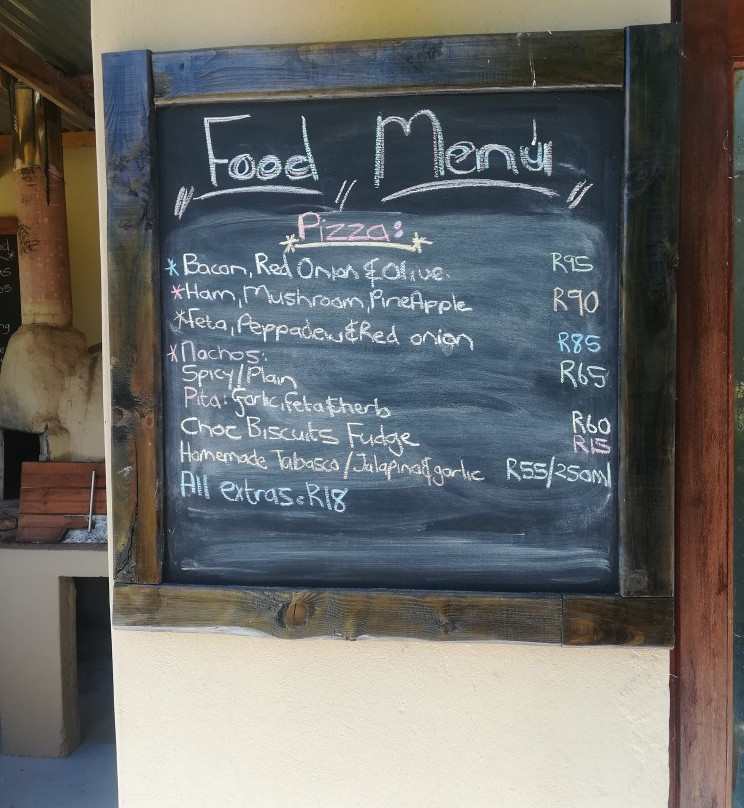 Food Menu
Pizza:
* Bacon, Red Onion & Olive. R95
* Ham, Mushroom, PineApple R90
* Feta, Peppadew & Red onion R85
* Nachos:
Spicy/Plain R65
Pita: Garlic, feta & herb R60
Choc Biscuits Fudge R15
Homemade Tabasco/Jalapino & garlic R55/250ml
All extras: R18